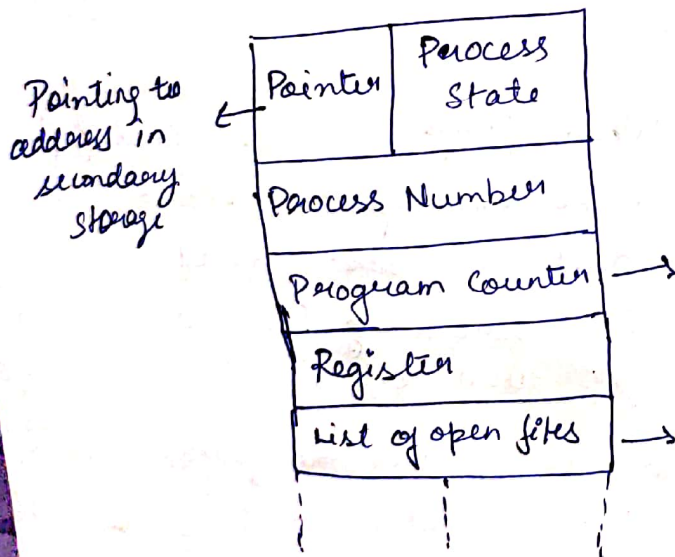 Pointing to
address in
secondary
storage
Pointer
Process
State
Process Number
Program Counter
Register
List of open files